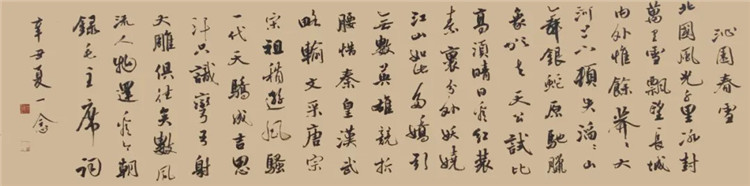 沁園春雪
北國風光千里冰封
萬里雪飄望長城
内外惟餘莽〻大
河上下頓失滔〻山
舞銀蛇原馳臘
象欲与天公試比
高須晴日看紅裝
素裹分外妖嬈
江山如此多嬌引
無數英雄競折
腰惜秦皇漢武
略輸文采唐宗
宋祖稍遜風騷
一代天驕成吉思
汗只識彎弓射
大雕俱往矣數風
流人物還看今朝
録毛主席詞
辛丑夏一念